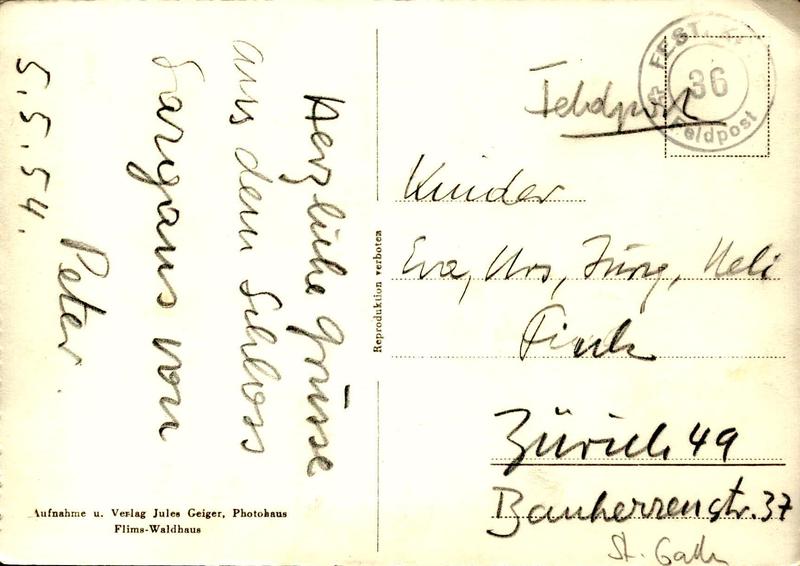 Herzliche Grüsse
aus dem Schloss
Sargans von
Peter
5.5.54.
Aufnahme u. Verlag Jules Geiger, Photohaus
Flims-Waldhaus
Reproduktion verboten
FEST.
36
Feldpost
Feldpost
Kinder
Eva, Urs, Jürg, Ueli
Fink
Zürich 49
Bauherrenstr. 37
St. Gall